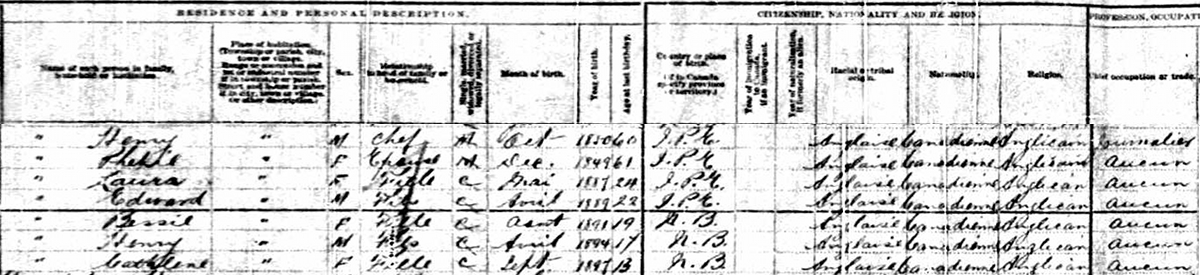 RESIDENCE AND PERSONAL DESCRIPTION. CITIZENSHIP, NATIONALITY AND RELIGION. PROFESSION, OCCUPAT
Name of each person in family, household or institution. Place of habitation. Sex. Relationship to head of family or household. Single, married, widowed, divorced or legally separated. Month of birth. Year of birth. Age at last birthday. Country or place of birth. (If in Canada specify province or territory.) Year of immigration to Canada, if an immigrant. Year of naturalization, if formerly an alien. Racial or tribal origin. Nationality. Religion. Chief occupation or trade.
" Henry " M Chef M Oct 1850 60 I.P.E. Anglaise Canadienne Anglican Journalier
" " F Epouse M Dec. 1849 61 I.P.E. Anglaise Canadienne Anglican aucun
" Laura " F Fille C Mai 1887 24 I.P.E. Anglaise Canadienne Anglican aucun
" Edward " M Fils C Avril 1889 22 I.P.E. Anglaise Canadienne Anglican aucun
" Bessil " F Fille C Aout 1891 19 N.B. Anglaise Canadienne Anglican aucun
" Henry " M Fils C Avril 1894 17 N.B. Anglaise Canadienne Anglican aucun
" " F Fille C Sept. 1897 13 N.B. Anglaise Canadienne Anglican aucun